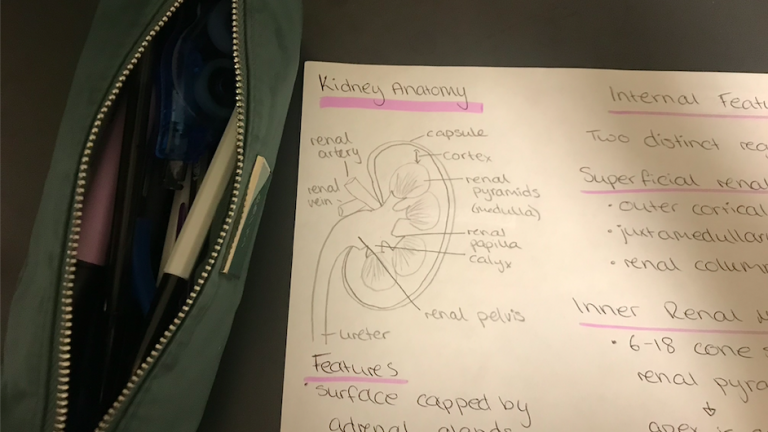 Kidney Anatomy
renal
artery
renal
vein
capsule
cortex
renal
pyramids
(medulla)
renal
papilla
calyx
renal pelvis
ureter
Features
• surface capped by
adrenal glands
Internal Featu
Two distinct reg
Superficial renal
• outer cortical
• juxtamedullar
• renal column
Inner Renal
• 6-18 cone
renal pyra
apex